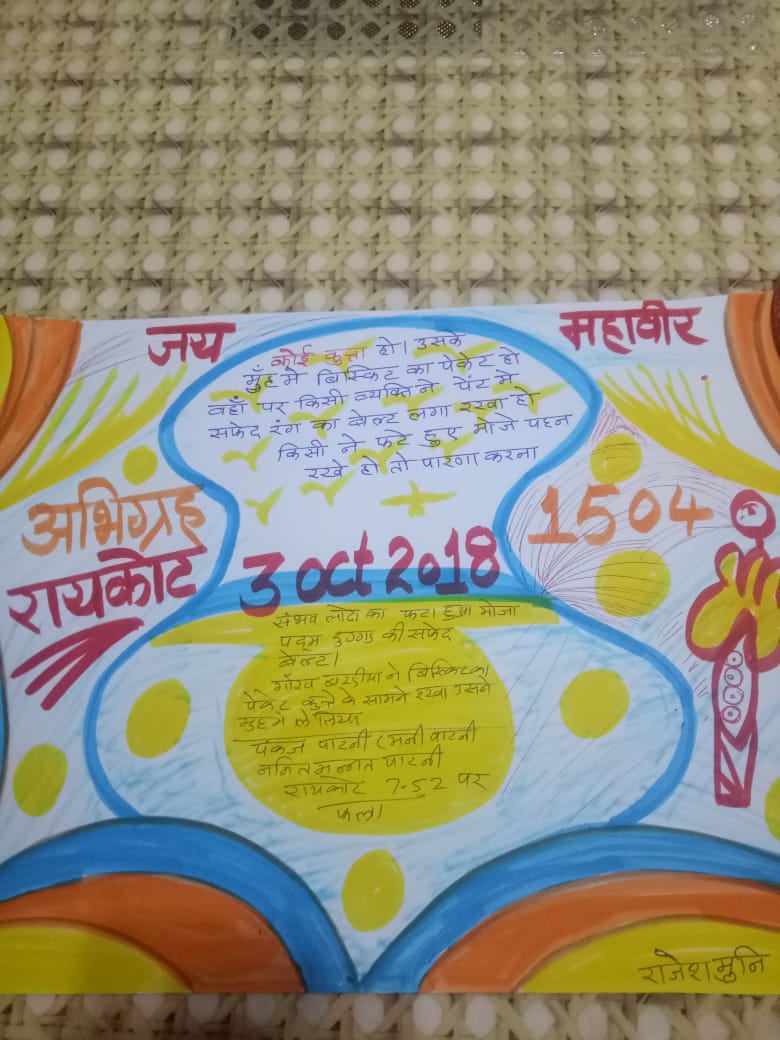 जय
महावीर
कोई कुत्ता हो। उसके
मुँह में बिस्किट का पेकेट हो
वहाँ पर किसी व्यक्ति ने पेंट में
सफेद रंग का बेल्ट लगा रखा हो
किसी ने फटे हुए मोजे पहन
रखे हो तो पारणा करना
अभिग्रह
1504
रायकोट
3 oct 2018
संभव लोढा का फटा हुआ मोजा
पदम डुग्गड की सफेद
बेल्ट।
गौरव बरडीया ने बिस्किट का
पेकेट कुत्ते के सामने रखा उसने
मुह में ले लिया
पंकज पाटनी (मनी पाटनी
पाटनी
रायकोट 7-52 पर
फला
राजेश मुनि